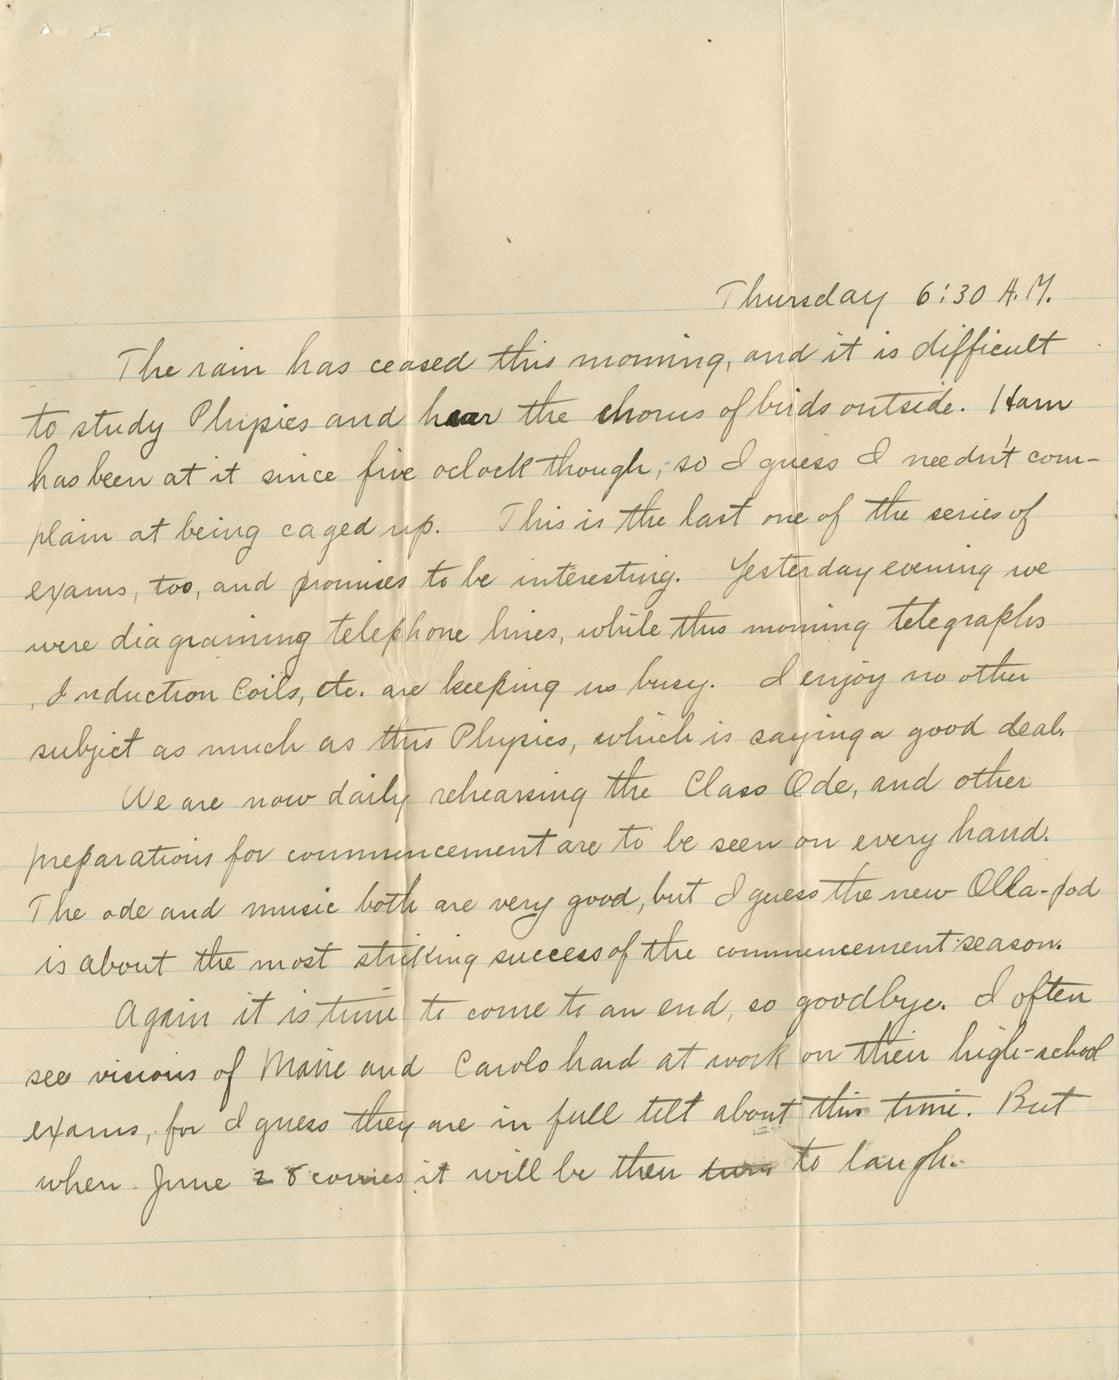 Thursday 6:30 A.M.
The rain has ceased this morning, and it is difficult
to study Physics and hear the chorus of birds outside. Ham
has been at it since five oclock though, so I guess I needn't com-
plain at being caged up. This is the last one of the series of
exams, too, and promises to be interesting. Yesterday evening we
were diagraming telephone lines, while this morning telegraphs
, Induction Coils, etc. are keeping us busy. I enjoy no other
subject as much as this Physics, which is saying a good deal.
We are now daily rehearsing the Class Ode, and other
preparations for commencement are to be seen on every hand.
The ode and music both are very good, but I guess the new Olla-pod
is about the most striking success of the commencement season.
Again it is time to come to an end, so goodbye. I often
see visions of Marie and Carolo hard at work on their high-school
exams, for I guess they are in full tilt about this time. But
when June 28 comes it will be their turn to laugh.